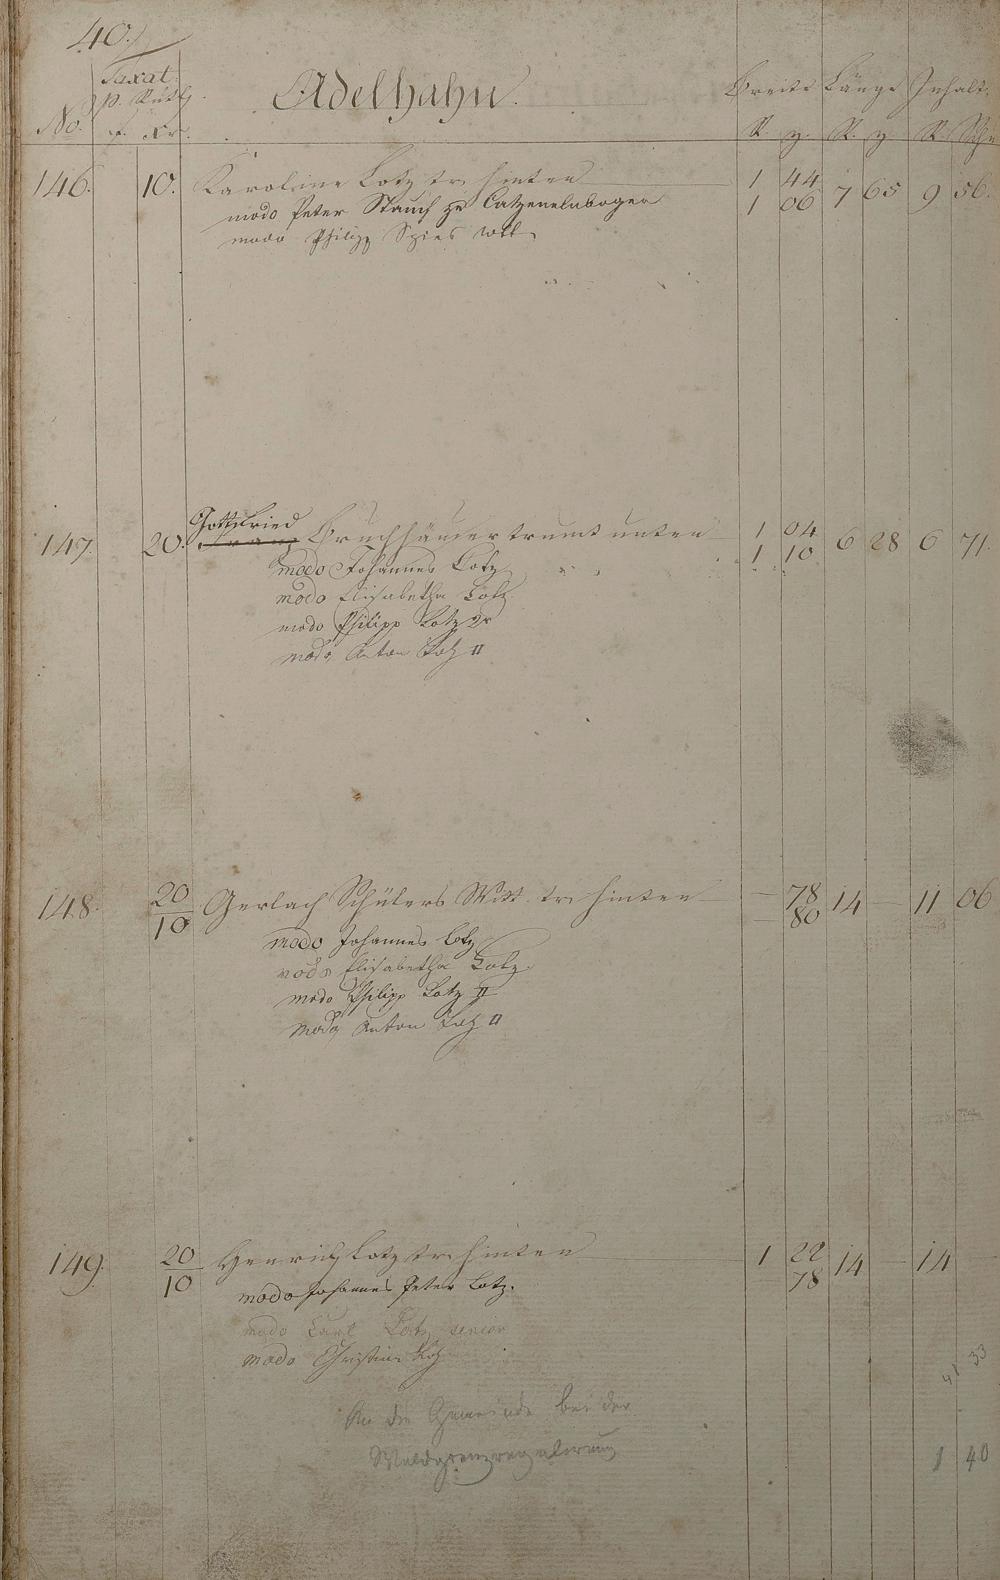 40.
Taxat.
No. p. Ruth. Adelhahn. Breite Länge Inhalt.
f. Xr. R. z. R. z. R. Sch.
146. 10. Karoline Lotz tr. hinten 1 44 7 65 9 56.
modo Peter Stauch zu Catzenelnbogen 1 06
modo Philipp Spies Wtb.
Gottfried
147. 20. Bruchhäuser trumt unten 1 04 6 28 6 71.
modo Johannes Lotz 1 10
modo Elisabetha Lotz
modo Philipp Lotz 2r
modo Anton Lotz II
148. 20 Gerlach Schülers Witt. tr. hinten – 78 14 – 11 06
10 80
modo Johannes Lotz
modo Elisabetha Lotz.
modo Philipp Lotz II
modo Anton Lotz II
149. 20 Henrich Lotz tr. hinten 1 22 14 – 14
10 modo Johannes Peter Lotz. 78
modo Carl Lotz senior
modo Christian Lotz
41 33
An die Gemeinde bei der
Waldgrenzregulirung
1 40